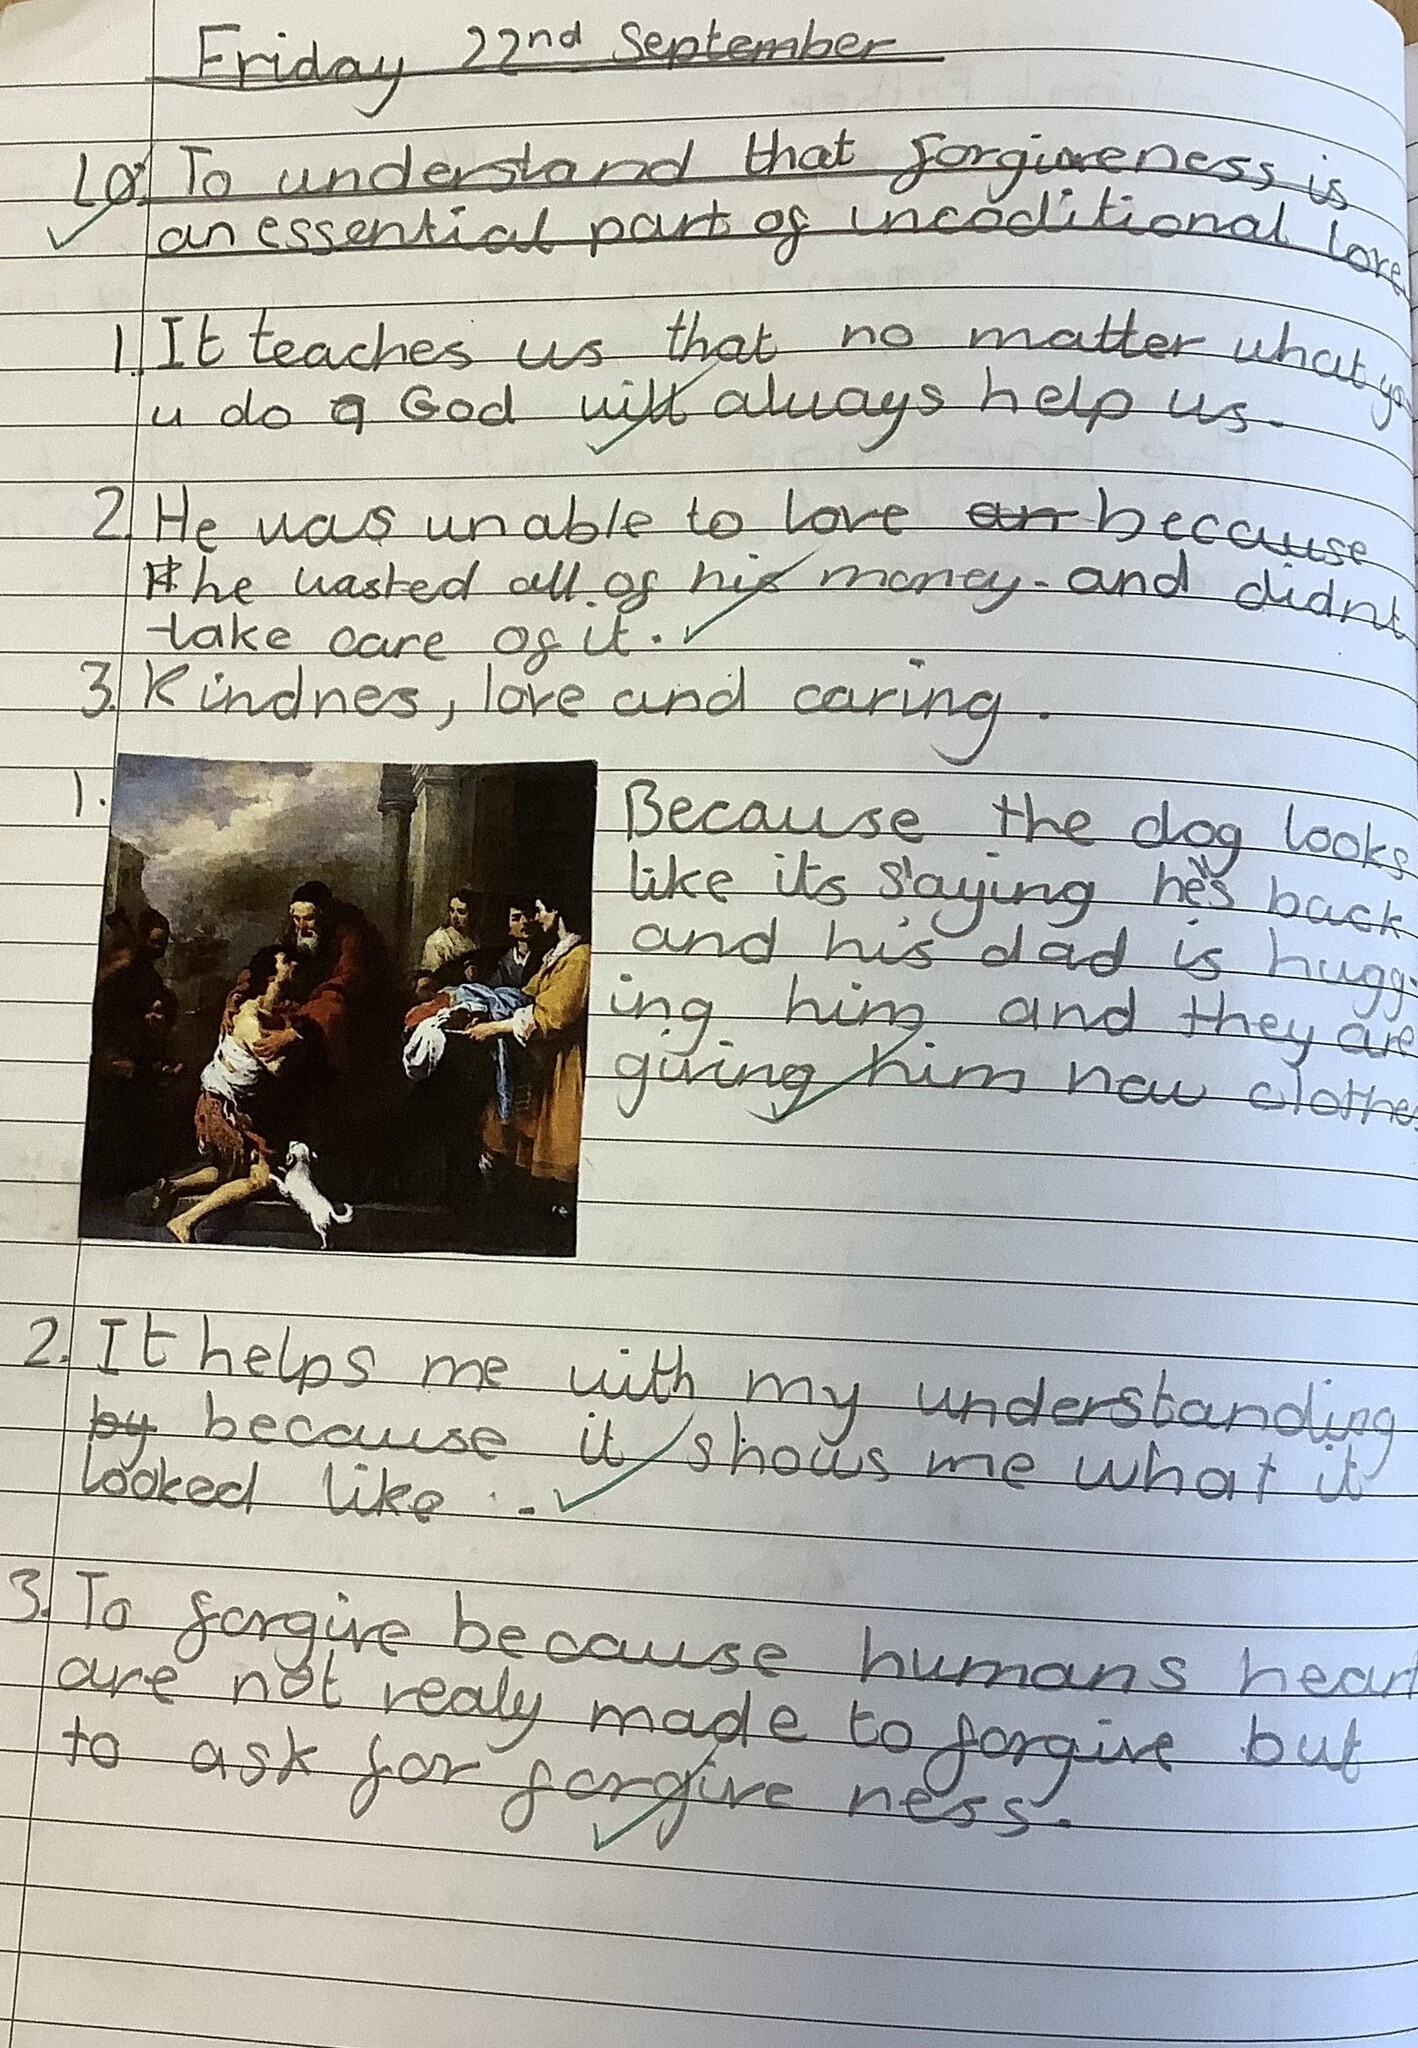 Friday 22nd September
LO: To understand that forgiveness is
an essential part of uncoditional love
1. It teaches us that no matter what yo
u do God will always help us.
2. He was unable to love because
he wasted all of his money. and didnt
take care of it.
3. Kindnes, love and caring.
1. Because the dog looks
like its saying he's back
and his dad is hugg-
ing him and they are
giving him new clothes
2. It helps me with my understanding
by because it shows me what it
looked like.
3. To forgive because humans heart
are not realy made to forgive but
to ask for forgive ness.